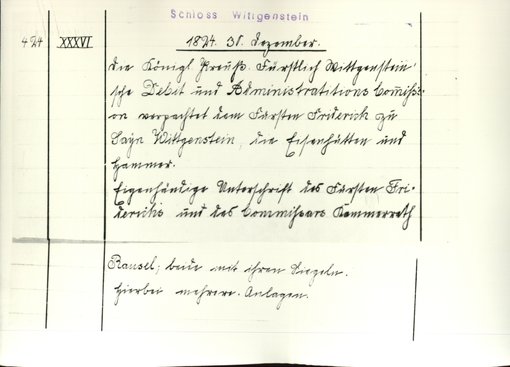 Schloss Wittgenstein
424 XXXVI 1824. 31. Dezember.
Die Königl. Preuß. Fürstlich Wittgenstein'
sche Debit und Administrations Commissi-
on verpachtet dem Fürsten Friderich zu
Sayn Wittgenstein, die Eisenhütten und
Hammer.
Eigenhändige Unterschrift des Fürsten Fri-
derichs und des Commissars Kammerrath
Rausel; beide mit ihren Siegeln.
Hierbei mehrere Anlagen.